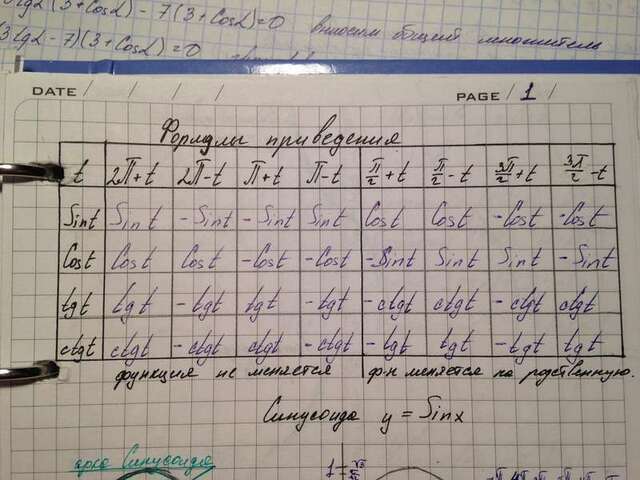 DATE
PAGE 1
Формулы приведения
t 2π+t 2π-t π+t π-t π/2+t π/2-t 3π/2+t 3π/2-t
Sint Sint -Sint -Sint Sint Cost Cost -Cost -Cost
Cost Cost Cost -Cost -Cost -Sint Sint Sint -Sint
tgt tgt -tgt tgt -tgt -ctgt ctgt -ctgt ctgt
ctgt ctgt -ctgt ctgt -ctgt -tgt tgt -tgt tgt
функция не меняется ф-я меняется на родственную.
Синусоида y = Sinx
7(3+cosα)=0
3tgα-7)(3+cosα)=0